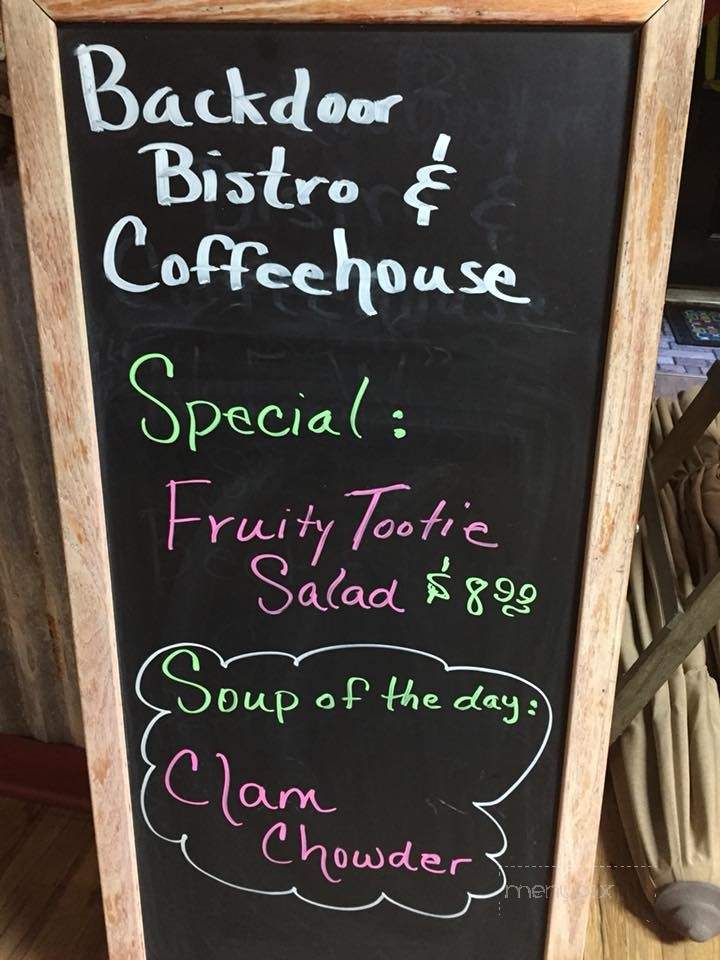 Backdoor
Bistro &
Coffeehouse
Special:
Fruity Tootie
Salad $8.99
Soup of the day:
Clam
Chowder
menupix